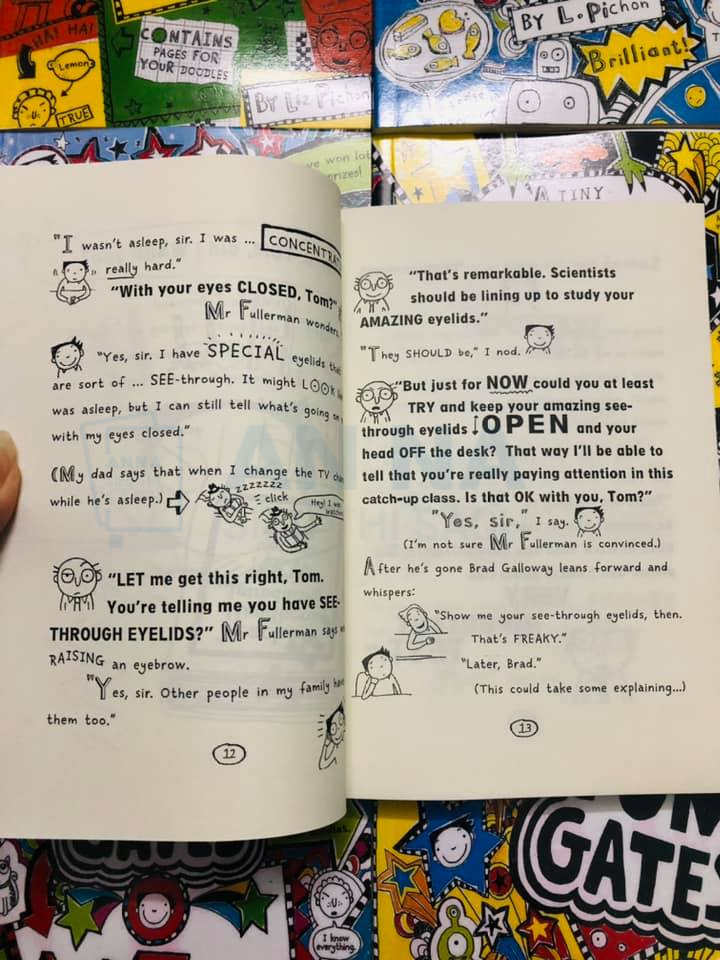 HA! HA!
Lemon
TRUE
CONTAINS
PAGES FOR
YOUR DOODLES
BY Liz Pichon
BY L. Pichon
Brilliant!
won lot
prizes!
A TINY
"I wasn't asleep, sir. I was ...
really hard."
"With your eyes CLOSED, Tom?"
Mr Fullerman wonders.
"Yes, sir. I have SPECIAL eyelids
are sort of ... SEE-through. It might LOOK
was asleep, but I can still tell what's going
with my eyes closed."
(My dad says that when I change the TV
while he's asleep.)
zzzzzzz
click
Hey! I
"LET me get this right, Tom.
You're telling me you have SEE-
THROUGH EYELIDS?" Mr Fullerman says
RAISING an eyebrow.
"Yes, sir. Other people in my family
them too."
12
"That's remarkable. Scientists
should be lining up to study your
AMAZING eyelids."
"They SHOULD be," I nod.
"But just for NOW could you at least
TRY and keep your amazing see-
through eyelids OPEN and your
head OFF the desk? That way I'll be able to
tell that you're really paying attention in this
catch-up class. Is that OK with you, Tom?"
"Yes, sir," I say.
(I'm not sure Mr Fullerman is convinced.)
After he's gone Brad Galloway leans forward and
whispers:
"Show me your see-through eyelids, then.
That's FREAKY."
"Later, Brad."
(This could take some explaining...)
13
GATES
I know
everything.